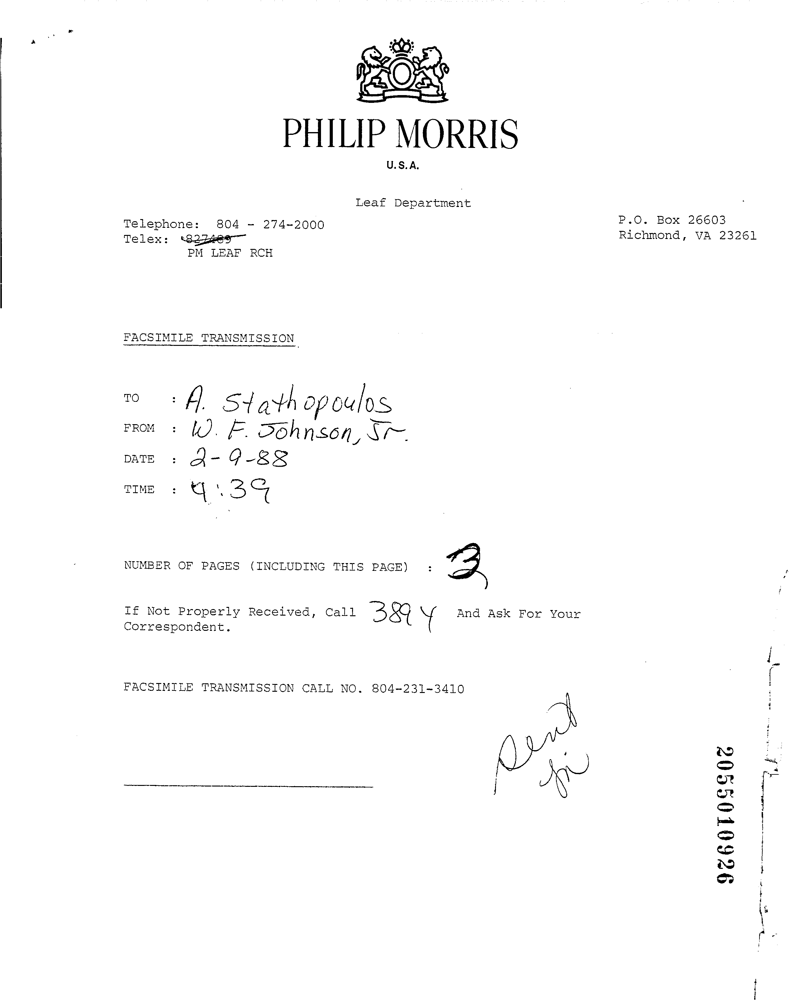 PHILIP MORRIS
U.S.A.
Leaf Department
Telephone: 804 - 274-2000
P.O. Box 26603
Telex: 827489
Richmond, VA 23261
PM LEAF RCH
FACSIMILE TRANSMISSION
TO : A. Stathopoulos
FROM : W. F. Johnson, Jr.
DATE : 2-9-88
TIME : 9:39
NUMBER OF PAGES (INCLUDING THIS PAGE) : 3
If Not Properly Received, Call 3894 And Ask For Your
Correspondent.
FACSIMILE TRANSMISSION CALL NO. 804-231-3410
sent
2055010926